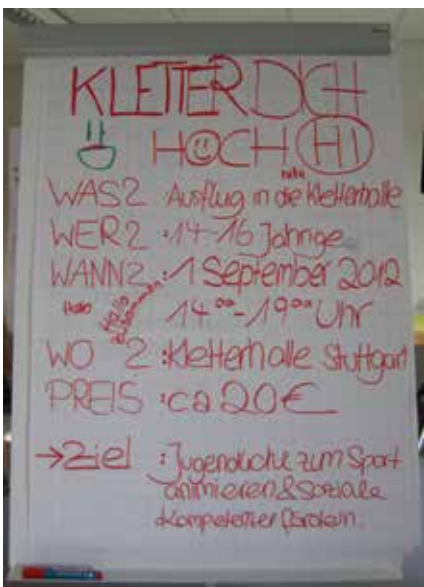 KLETTER DICH
HOCH HI
haha
WAS? Ausflug in die Kletterhalle
WER? :14-16 Jährige
WANN? :1 September 2012
Hallo Hallo zusammen
14⁰⁰-19⁰⁰ Uhr
WO ? :Kletterhalle Stuttgart
PREIS :ca 20€
→Ziel :Jugendliche zum Sport
animieren & soziale
Kompetenzen fördern.